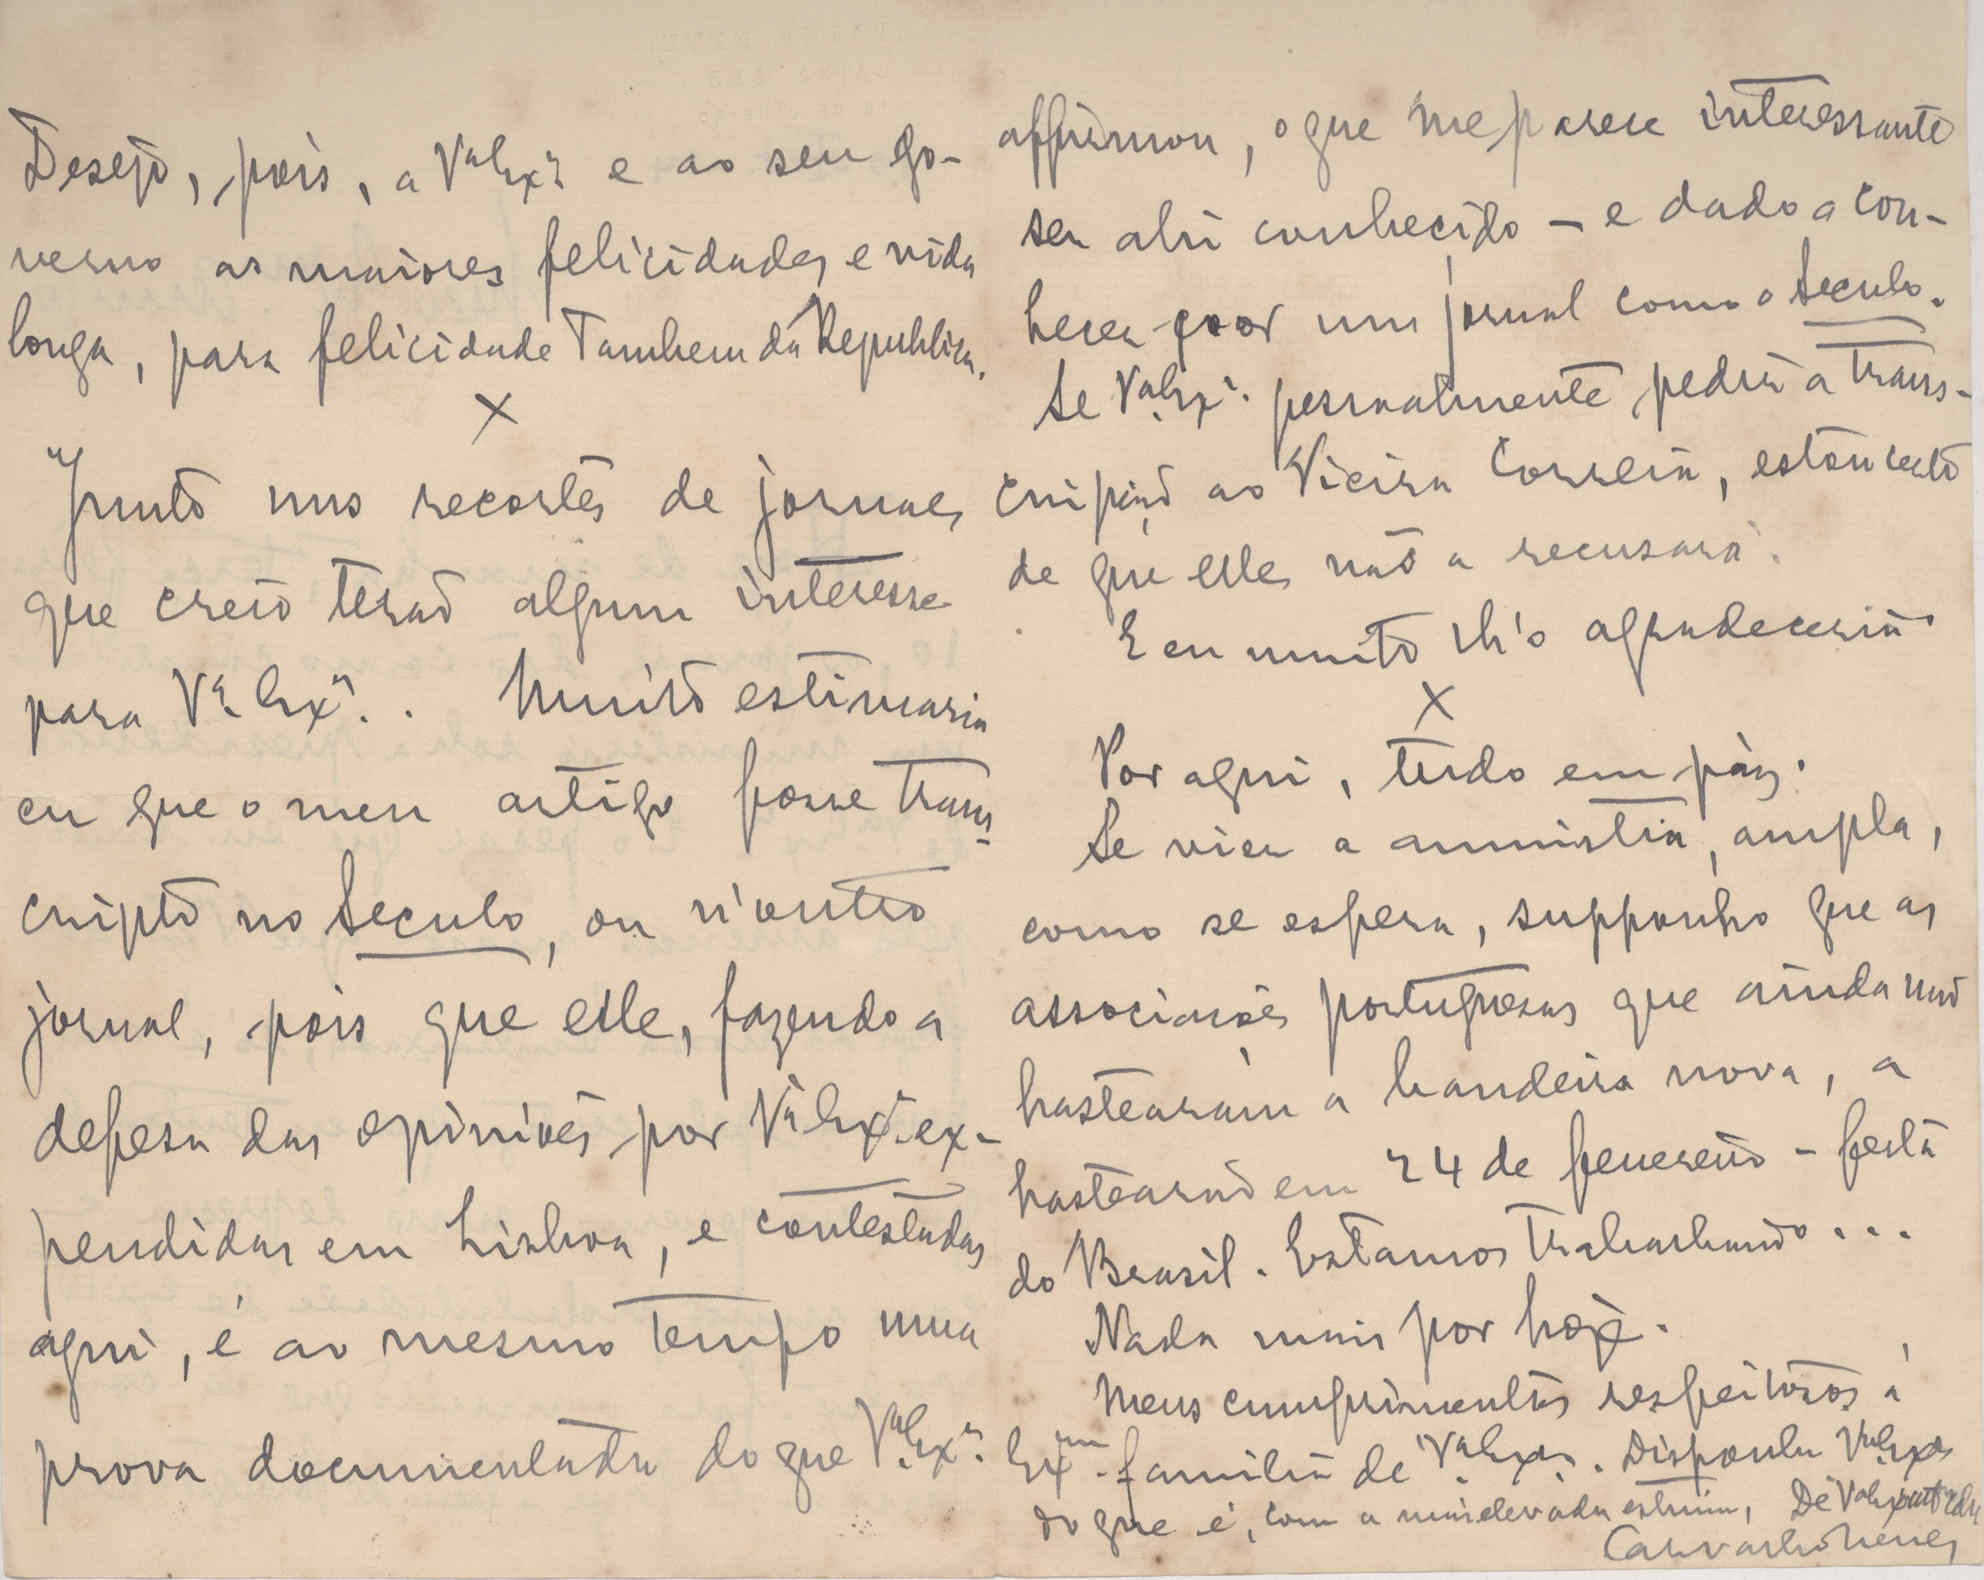 Desejo, pois, a Vª Exª e ao seu go-
verno as maiores felicidades, e vida
longa, para felicidade tambem da Republica.
X
Junto uns recortes de jornaes
que creio terão algum interesse
para Vª Exª. Muito estimaria
eu que o meu artigo fosse trans-
cripto no Seculo, ou n'outro
jornal, pois que elle, fazendo a
defesa das opiniões por Vª Exª ex-
pendidas em Lisboa, e contestadas
aqui, é ao mesmo tempo uma
prova documentada do que Vª Exª
affirmou, o que me parece interessante
ser ahi conhecido – e dado a con-
hecer por um jornal como o Seculo.
Se Vª Exª pessoalmente pedir a trans-
cripção ao Vieira Correia, estou certo
de que elle não a recusará.
E eu muito lh'o agradeceria.
X
Por aqui, tudo em páz.
Se vier a amnistia, ampla,
como se espera, supponho que as
associações portuguesas que ainda não
hastearam a bandeira nova, a
hastearão em 24 de fevereiro – festa
do Brasil. Estamos trabalhando...
Nada mais por hoje.
Meus cumprimentos respeitosos á
Exma familia de Vª Exª. Disponha Vª Exª
do que é, com a mais elevada estima, De Vª Exª
Carvalho Neves